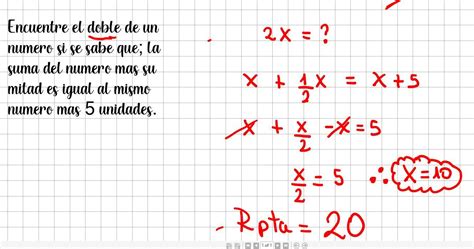 Encuentre el doble de un
numero si se sabe que; la
suma del numero mas su
mitad es igual al mismo
numero mas 5 unidades.
2x = ?
x + 1/2 x = x+5
x + x/2 - x = 5
x/2 = 5 ∴ x=10
- Rpta = 20